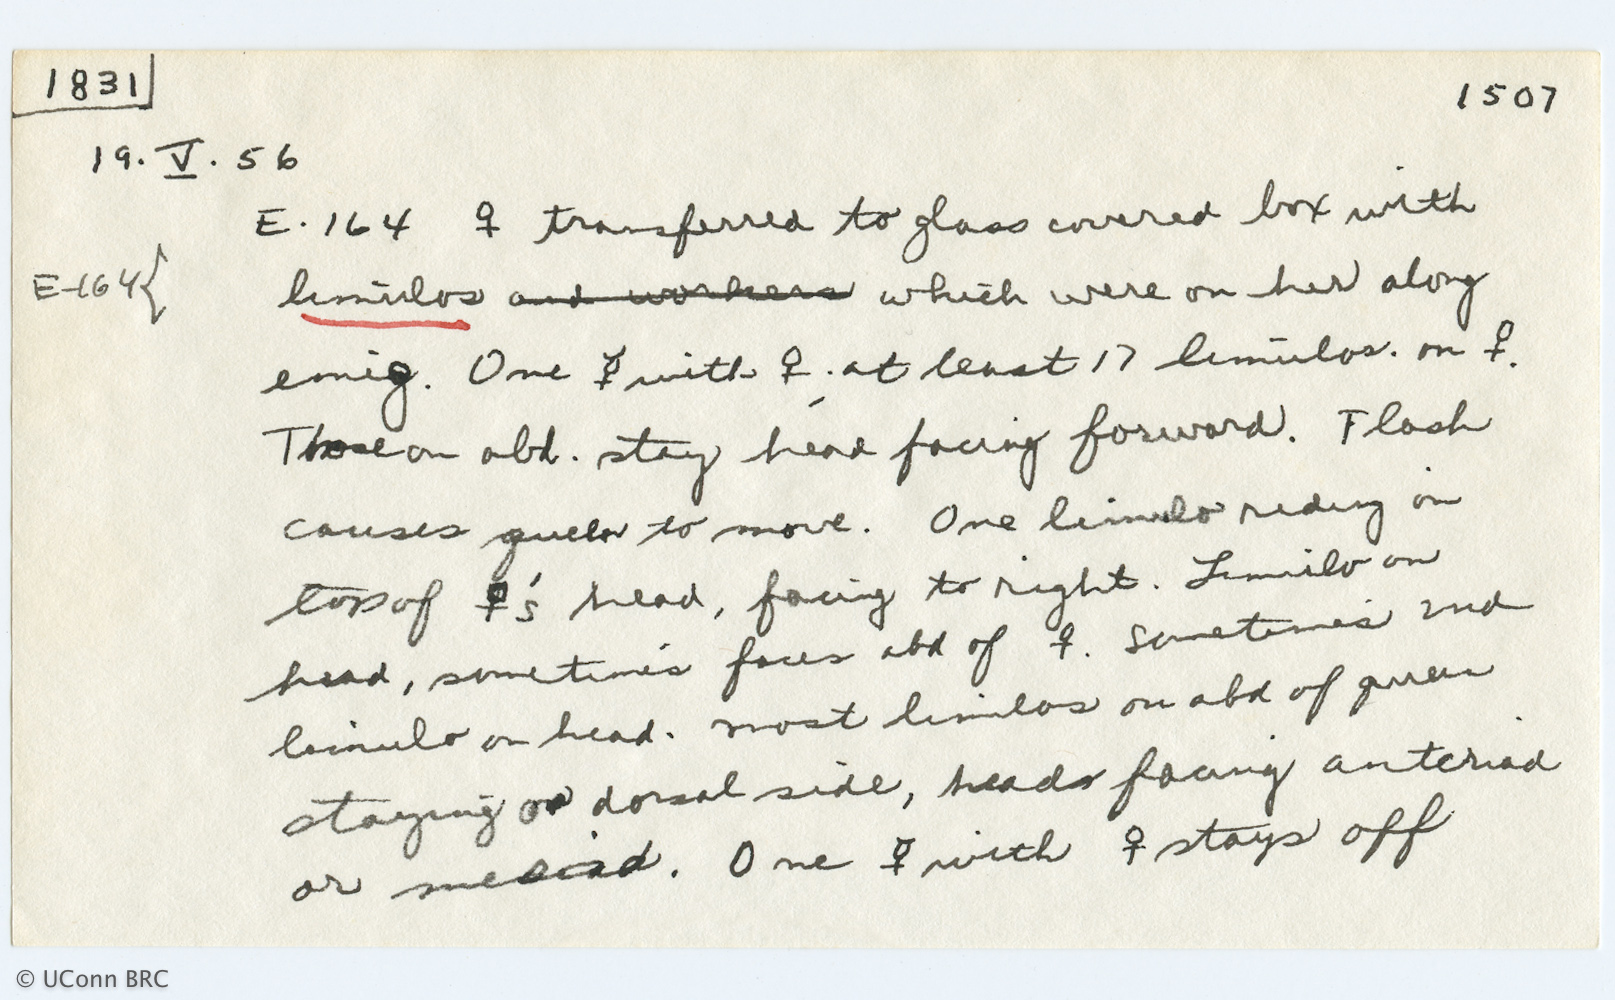 1831
1507
19. V. 56
E. 164 ♀ transferred to glass covered box with
E-164{
limulos and workers which were on her along
emig. One ☿ with ♀. at least 17 limulos. on ♀.
Those on abd. stay head facing forward. Flash
causes queen to move. One limulo riding on
top of ♀'s head, facing to right. Limulo on
head, sometimes faces abd of ♀. Sometimes 2nd
limulo on head. most limulos on abd of queen
staying on dorsal side, heads facing anteriad
or mesiad. One ☿ with ♀ stays off
© UConn BRC